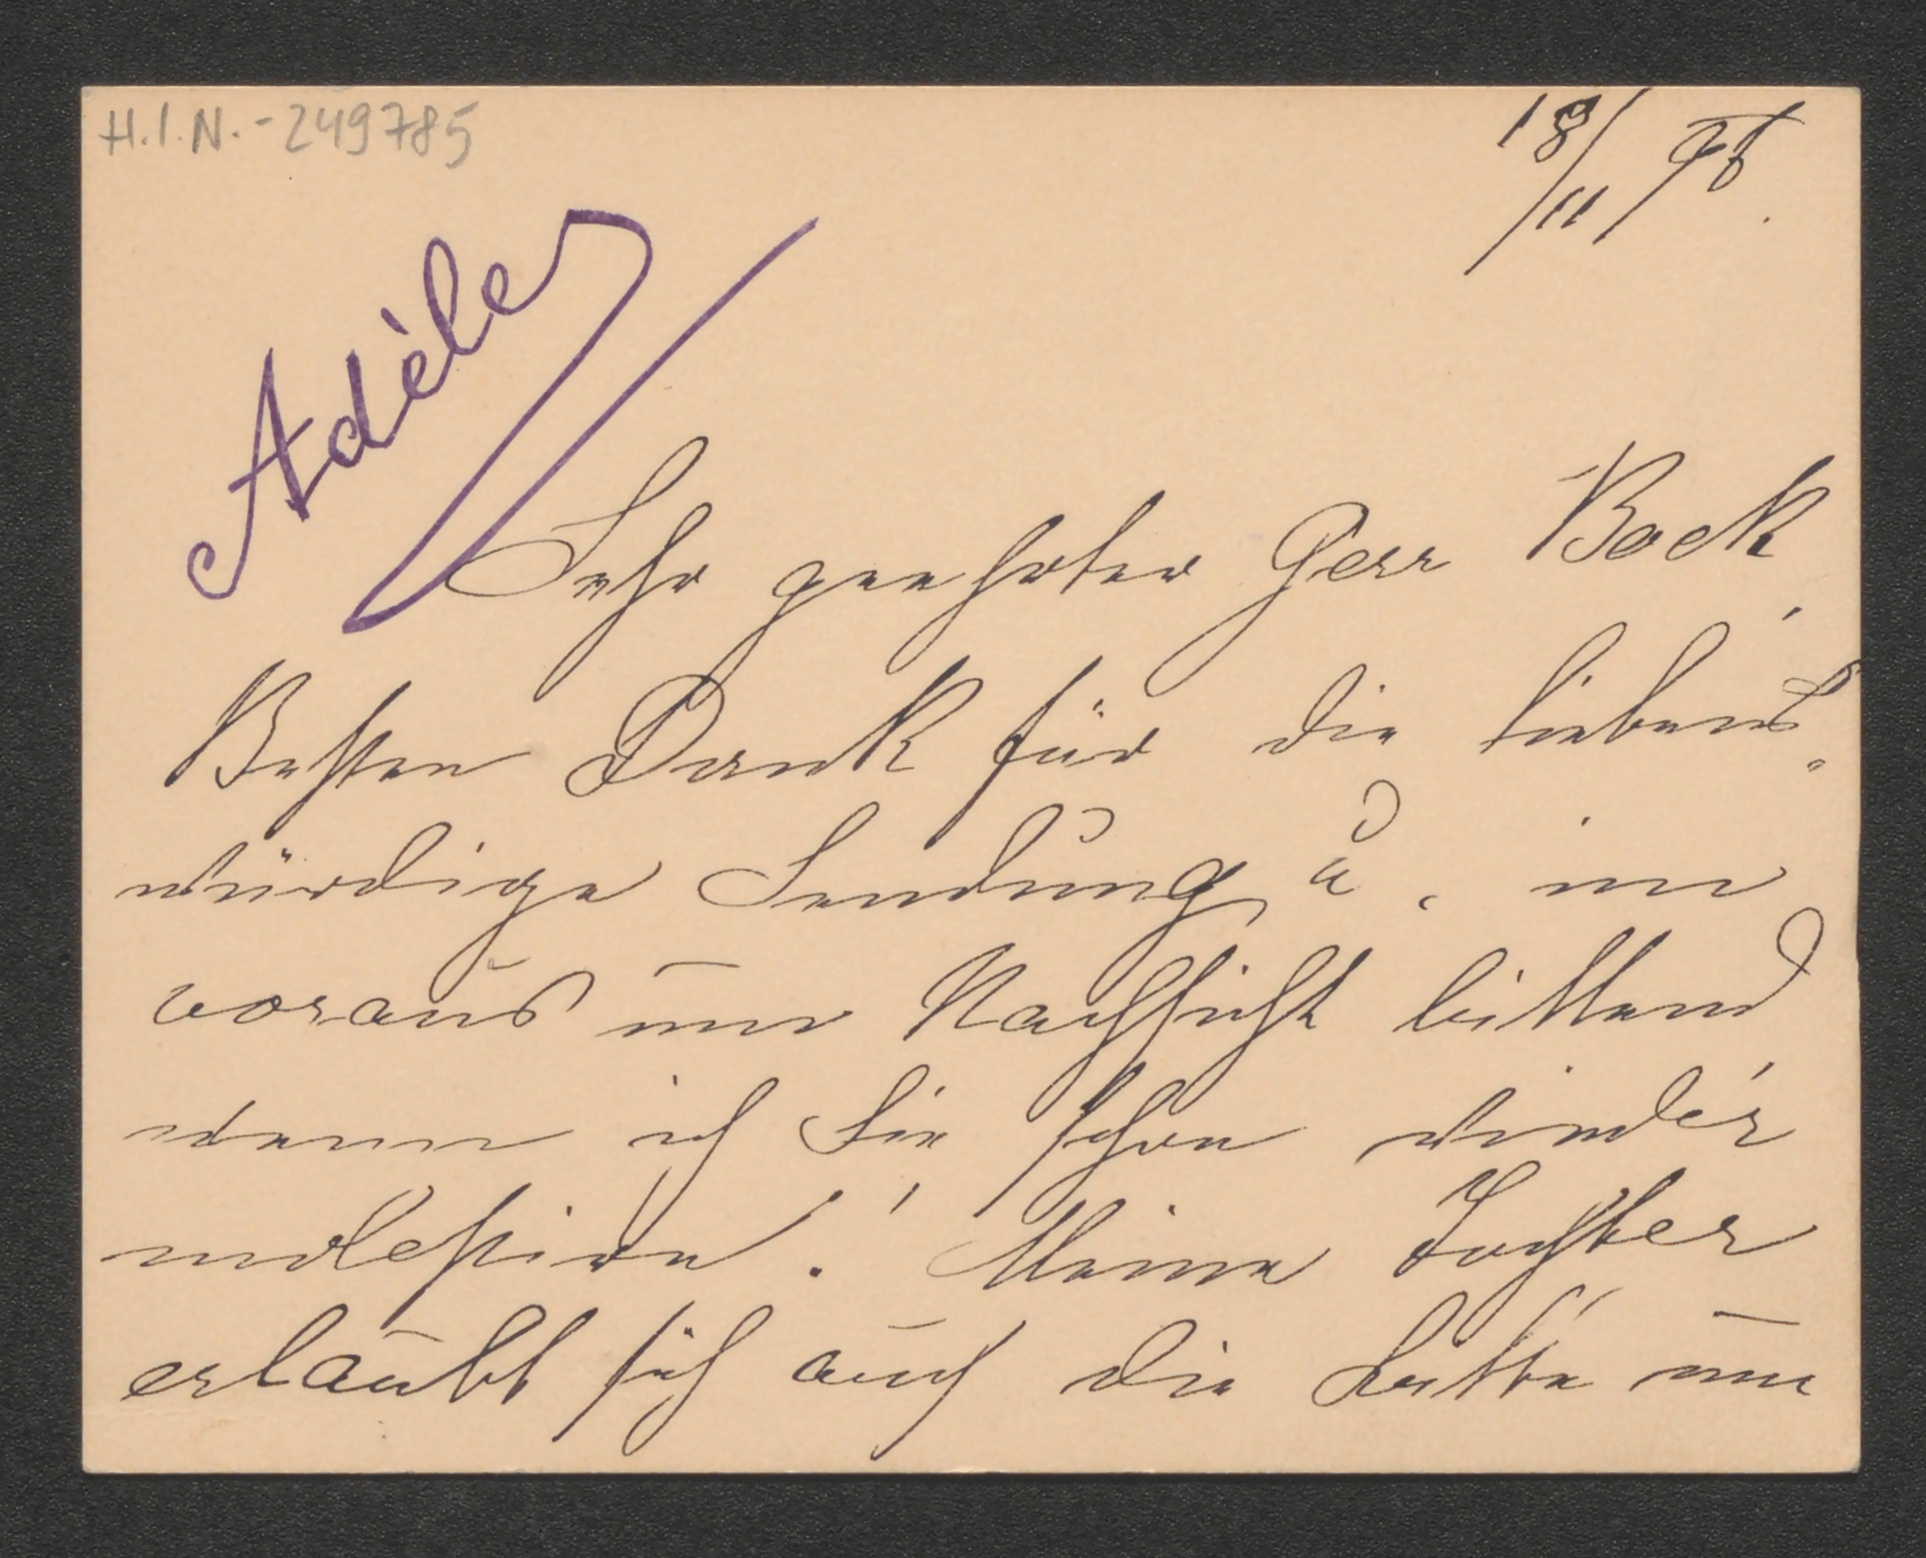 H.I.N.-249785
18/11 96.
Adèle
Sehr geehrter Herr Bock,
Besten Dank für die liebens¬
würdige Sendung u. im
voraus um Nachsicht bittend
wenn ich Sie schon wieder
molestire! Meine Tochter
erlaubt sich auch die Bitte um